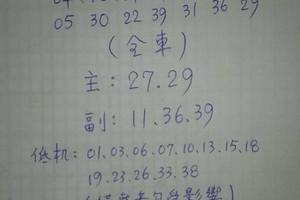 05 30 22 39 31 36 29
(全車)
主：27.29
副：11.36.39
低机：01.03.06.07.10.13.15.18
19.23.26.33.38